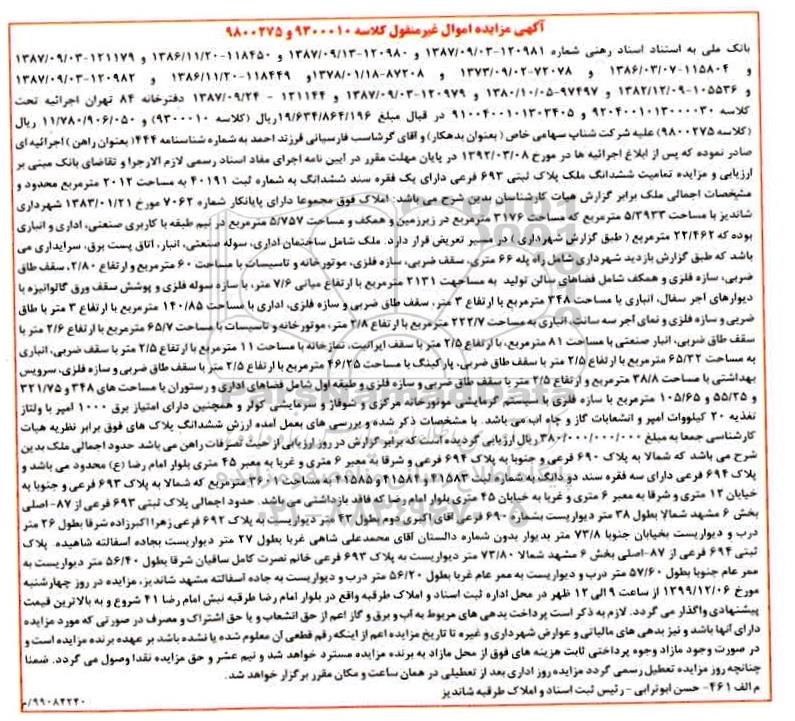 آگهی مزایده اموال غیرمنقول کلاسه ۹۳۰۰۰۱۰ و ۹۸۰۰۲۷۵
بانک ملی به استناد اسناد رهنی شماره ۱۲۰۹۸۱-۱۳۸۷/۰۹/۰۳ و ۱۲۰۹۸۰-۱۳۸۷/۰۹/۱۳ و ۱۱۸۴۵۰-۱۳۸۶/۱۱/۲۰ و ۱۲۱۱۷۹-۱۳۸۷/۰۹/۰۳
و ۱۱۵۸۰۴-۱۳۸۶/۰۳/۰۷ و ۷۲۰۷۸-۱۳۷۳/۰۹/۰۲ و ۸۷۲۰۸-۱۳۷۸/۰۱/۱۸ و ۱۱۸۴۴۹-۱۳۸۶/۱۱/۲۰ و ۱۲۰۹۸۲-۱۳۸۷/۰۹/۰۳
و ۱۰۵۵۳۶-۱۳۸۲/۱۲/۰۹ و ۹۷۴۹۷-۱۳۸۰/۱۰/۰۵ و ۱۲۰۹۷۹-۱۳۸۷/۰۹/۰۳ و ۱۲۱۱۴۴ - ۱۳۸۷/۰۹/۲۴ دفترخانه ۸۴ تهران اجرائیه تحت
کلاسه ۹۲۰۴۰۰۱۰۱۳۰۰۰۰۳۰ و ۹۱۰۰۴۰۰۱۰۱۳۰۳۴۰۵ در قبال مبلغ ۱۹/۶۳۴/۸۶۴/۱۹۶ریال (کلاسه ۹۳۰۰۰۱۰) و ۱۱/۷۸۰/۹۰۶/۰۵۰ ریال
(کلاسه ۹۸۰۰۲۷۵) علیه شرکت شناپ سهامی خاص (بعنوان بدهکار) و آقای گرشاسب فارسیانی فرزند احمد به شماره شناسنامه ۴۴۴( بعنوان راهن ) اجرائیه ای
صادر نموده که پس از ابلاغ اجرائیه ها در مورخ ۱۳۹۲/۰۳/۰۸ در پایان مهلت مقرر در آیین نامه اجرای مفاد اسناد رسمی لازم الاجرا و تقاضای بانک مبنی بر
ارزیابی و مزایده تمامیت ششدانگ ملک پلاک ثبتی ۶۹۳ فرعی دارای یک فقره سند ششدانگ به شماره ثبت ۴۰۱۹۱ به مساحت ۲۰۱۲ مترمربع محدود و
مشخصات اجمالی ملک برابر گزارش هیات کارشناسان بدین شرح می باشد: املاک فوق مجموعا دارای پایانکار شماره ۷۰۶۲ مورخ ۱۳۸۳/۰۱/۲۱ شهرداری
شاندیز با مساحت ۵/۳۹۳۳ مترمربع که مساحت ۳۱۷۶ مترمربع در زیرزمین و همکف و مساحت ۵/۷۵۷ مترمربع در نیم طبقه با کاربری صنعتی، اداری و انباری
بوده که ۲۲/۴۶۲ مترمربع ( طبق گزارش شهرداری ) در مسیر تعریض قرار دارد. ملک شامل ساختمان اداری، سوله صنعتی، انبار، اتاق پست برق، سرایداری می
باشد که طبق گزارش بازدید شهرداری شامل راه پله ۶۶ متری، سقف ضربی، سازه فلزی، موتورخانه و تاسیسات با مساحت ۶۰ مترمربع و ارتفاع ۲/۸۰، سقف طاق
ضربی، سازه فلزی و همکف شامل فضاهای سالن تولید به مساحهت ۲۱۳۱ مترمربع با ارتفاع میانی ۷/۶ متر، با سازه سوله فلزی و پوشش سقف ورق گالوانیزه با
دیوارهای آجر سفال، انباری با مساحت ۳۴۸ مترمربع با ارتفاع ۳ متر، سقف طاق ضربی و سازه فلزی، اداری با مساحت ۱۴۰/۸۵ مترمربع با ارتفاع ۳ متر با طاق
ضربی و سازه فلزی و نمای آجر سه سانت، انباری به مساحت ۲۲۲/۷ مترمربع با ارتفاع ۲/۸ متر، موتورخانه و تاسیسات با مساحت ۶۵/۷ مترمربع با ارتفاع ۲/۶ متر با
سقف طاق ضربی، انبار صنعتی با مساحت ۸۱ مترمربع، با ارتفاع ۲/۵ متر با سقف ایرانیت، نمازخانه با مساحت ۱۱ مترمربع با ارتفاع ۲/۵ متر با سقف ضربی، انباری
به مساحت ۶۵/۳۲ مترمربع با ارتفاع ۲/۵ متر با سقف طاق ضربی، پارکینگ با مساحت ۴۶/۲۵ مترمربع با ارتفاع ۲/۵ متر با سقف طاق ضربی و سازه فلزی، سرویس
بهداشتی با مساحت ۳۸/۸ مترمربع و ارتفاع ۲/۵ متر با سقف طاق ضربی و سازه فلزی و طبقه اول شامل فضاهای اداری و رستوران با مساحت های ۳۴۸ و ۳۲۱/۷۵
و ۵۵/۲۵ و ۱۰۵/۶۵ مترمربع با سازه فلزی با سیستم گرمایشی موتورخانه مرکزی و شوفاژ و سرمایشی کولر و همچنین دارای امتیاز برق ۱۰۰۰ آمپر با ولتاژ
تغذیه ۲۰ کیلووات آمپر و انشعابات گاز و چاه آب می باشد. با مشخصات ذکر شده و بررسی های بعمل آمده ارزش ششدانگ پلاک های فوق برابر نظریه هیات
کارشناسی جمعا به مبلغ ۳۸۰/۰۰۰/۰۰۰/۰۰۰ ریال ارزیابی گردیده است که برابر گزارش در روز ارزیابی از حیث تصرفات راهن می باشد حدود اجمالی ملک بدین
شرح می باشد که شمالا به پلاک ۶۹۰ فرعی و جنوبا به پلاک ۶۹۴ فرعی و شرقا به معبر ۶ متری و غربا به معبر ۴۵ متری بلوار امام رضا (ع) محدود می باشد و
پلاک ۶۹۴ فرعی دارای سه فقره سند دو دانگ به شماره ثبت ۴۱۵۸۳ و ۴۱۵۸۴ و ۴۱۵۸۵ به مساحت ۳۶۰۱ مترمربع که شمالا به پلاک ۶۹۳ فرعی و جنوبا به
خیابان ۱۲ متری و شرقا به معبر ۶ متری و غربا به خیابان ۴۵ متری بلوار امام رضا که فاقد بازداشتی می باشد. حدود اجمالی پلاک ثبتی ۶۹۳ فرعی از ۸۷- اصلی
بخش ۶ مشهد شمالا بطول ۳۸ متر دیواریست بشماره ۶۹۰ فرعی آقای اکبری دوم بطول ۴۳ متر دیواریست به پلاک ۶۹۲ فرعی زهرا اکبرزاده شرقا بطول ۲۶ متر
درب و دیواریست بخیابان جنوبا ۷۳/۸ متر بدیوار بدون شماره دالستان آقای محمدعلی شاهی غربا بطول ۲۷ متر دیواریست بجاده آسفالته شاهیده. پلاک
ثبتی ۶۹۴ فرعی از ۸۷-اصلی بخش ۶ مشهد شمالا ۷۳/۸۰ متر دیواریست به پلاک ۶۹۳ فرعی خانم نصرت کامل ساقیان شرقا بطول ۵۶/۴۰ متر دیواریست به
ممر عام جنوبا بطول ۵۷/۶۰ متر درب و دیواریست به ممر عام غربا بطول ۵۶/۲۰ متر درب و دیواریست به جاده آسفالته مشهد شاندیز، مزایده در روز چهارشنبه
مورخ ۱۳۹۹/۱۲/۰۶ از ساعت ۹ الی ۱۲ ظهر در محل اداره ثبت اسناد و املاک طرقبه واقع در بلوار امام رضا طرقبه نبش امام رضا ۴۱ شروع و به بالاترین قیمت
پیشنهادی واگذار می گردد. لازم به ذکر است پرداخت بدهی های مربوط به آب و برق و گاز اعم از حق انشعاب و یا حق اشتراک و مصرف در صورتی که مورد مزایده
دارای آنها باشد و نیز بدهی های مالیاتی و عوارض شهرداری و غیره تا تاریخ مزایده اعم از اینکه رقم قطعی آن معلوم شده یا نشده باشد بر عهده برنده مزایده است و
در صورت وجود مازاد وجوه پرداختی ثابت هزینه های فوق از محل مازاد به برنده مزایده مسترد خواهد شد و نیم عشر و حق مزایده نقدا وصول می گردد. ضمنا
چنانچه روز مزایده تعطیل رسمی گردد مزایده روز اداری بعد از تعطیلی در همان ساعت و مکان مقرر برگزار خواهد شد.
م الف ۴۶۱- حسن ابوترابی - رئیس ثبت اسناد و املاک طرقبه شاندیز
۹۹۰۸۴۲۴۰/م